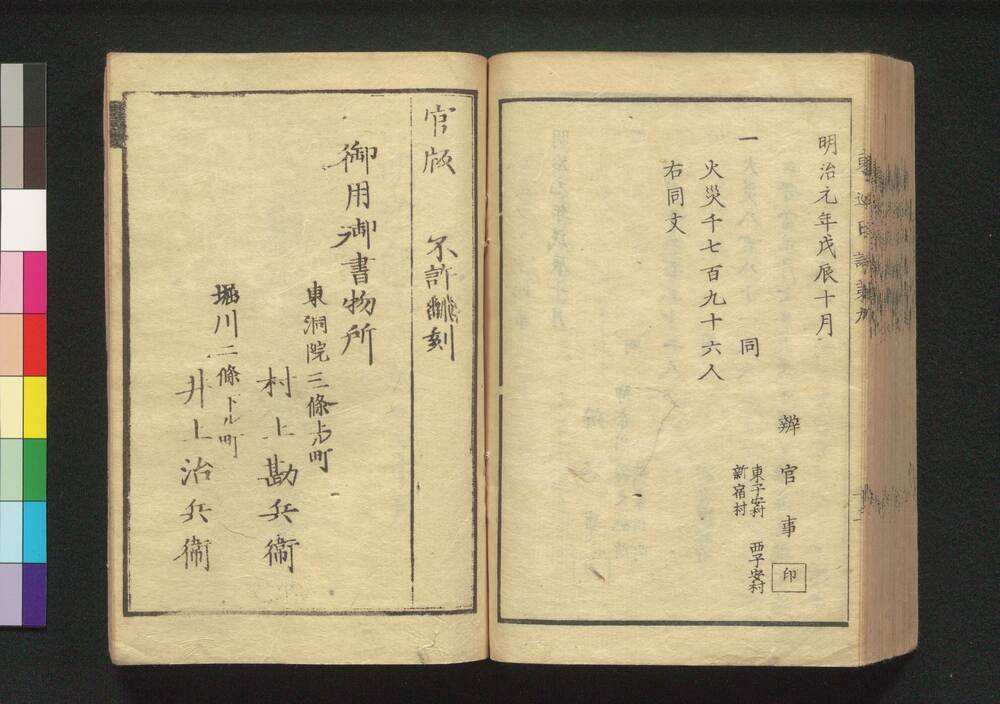 明治元年戊辰十月
辨官事 印
一 同 東子安村 西子安村
新宿村
火災千七百九十六人
右同文
官版 不許翻刻
御用御書物所
東洞院三條上町
村上勘兵衛
堀川二條下ル町
井上治兵衛